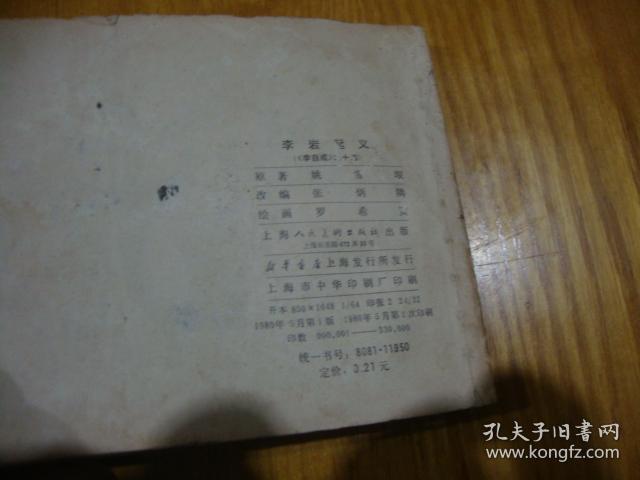 李岩起义
(《李自成》之十
原著 姚雪垠
改编 张
绘画 罗希
上海人民美术出版社出版
上海长乐路672弄33号
新华书店上海发行所发行
上海市中华印刷厂印刷
开本 850×1168 1/64 印张 2 24/32
1980年5月第1版 1980年5月第1次印刷
印数 000,001——330,000
统一书号：8081·11950
定价：0.21元
孔夫子旧书网
www.kongfz.com